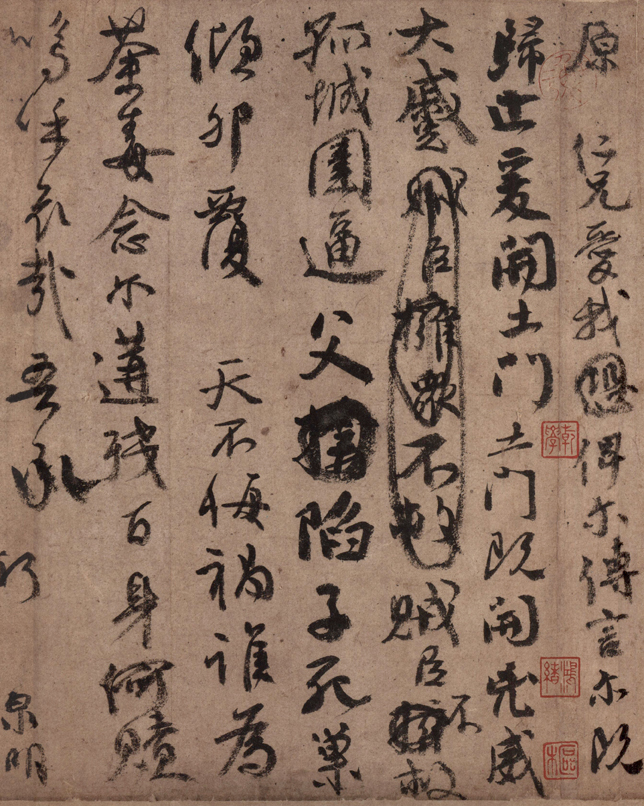 原 仁兄愛我俾尔傳言尔既
歸止爰開土門土門既開凶威
大蹙賊臣擁眾不救賊臣不救
孤城圍逼父陷子死巢
傾卵覆 天不悔禍誰為
荼毒念尔遘殘百身何贖
嗚乎哀哉吾承
泉明